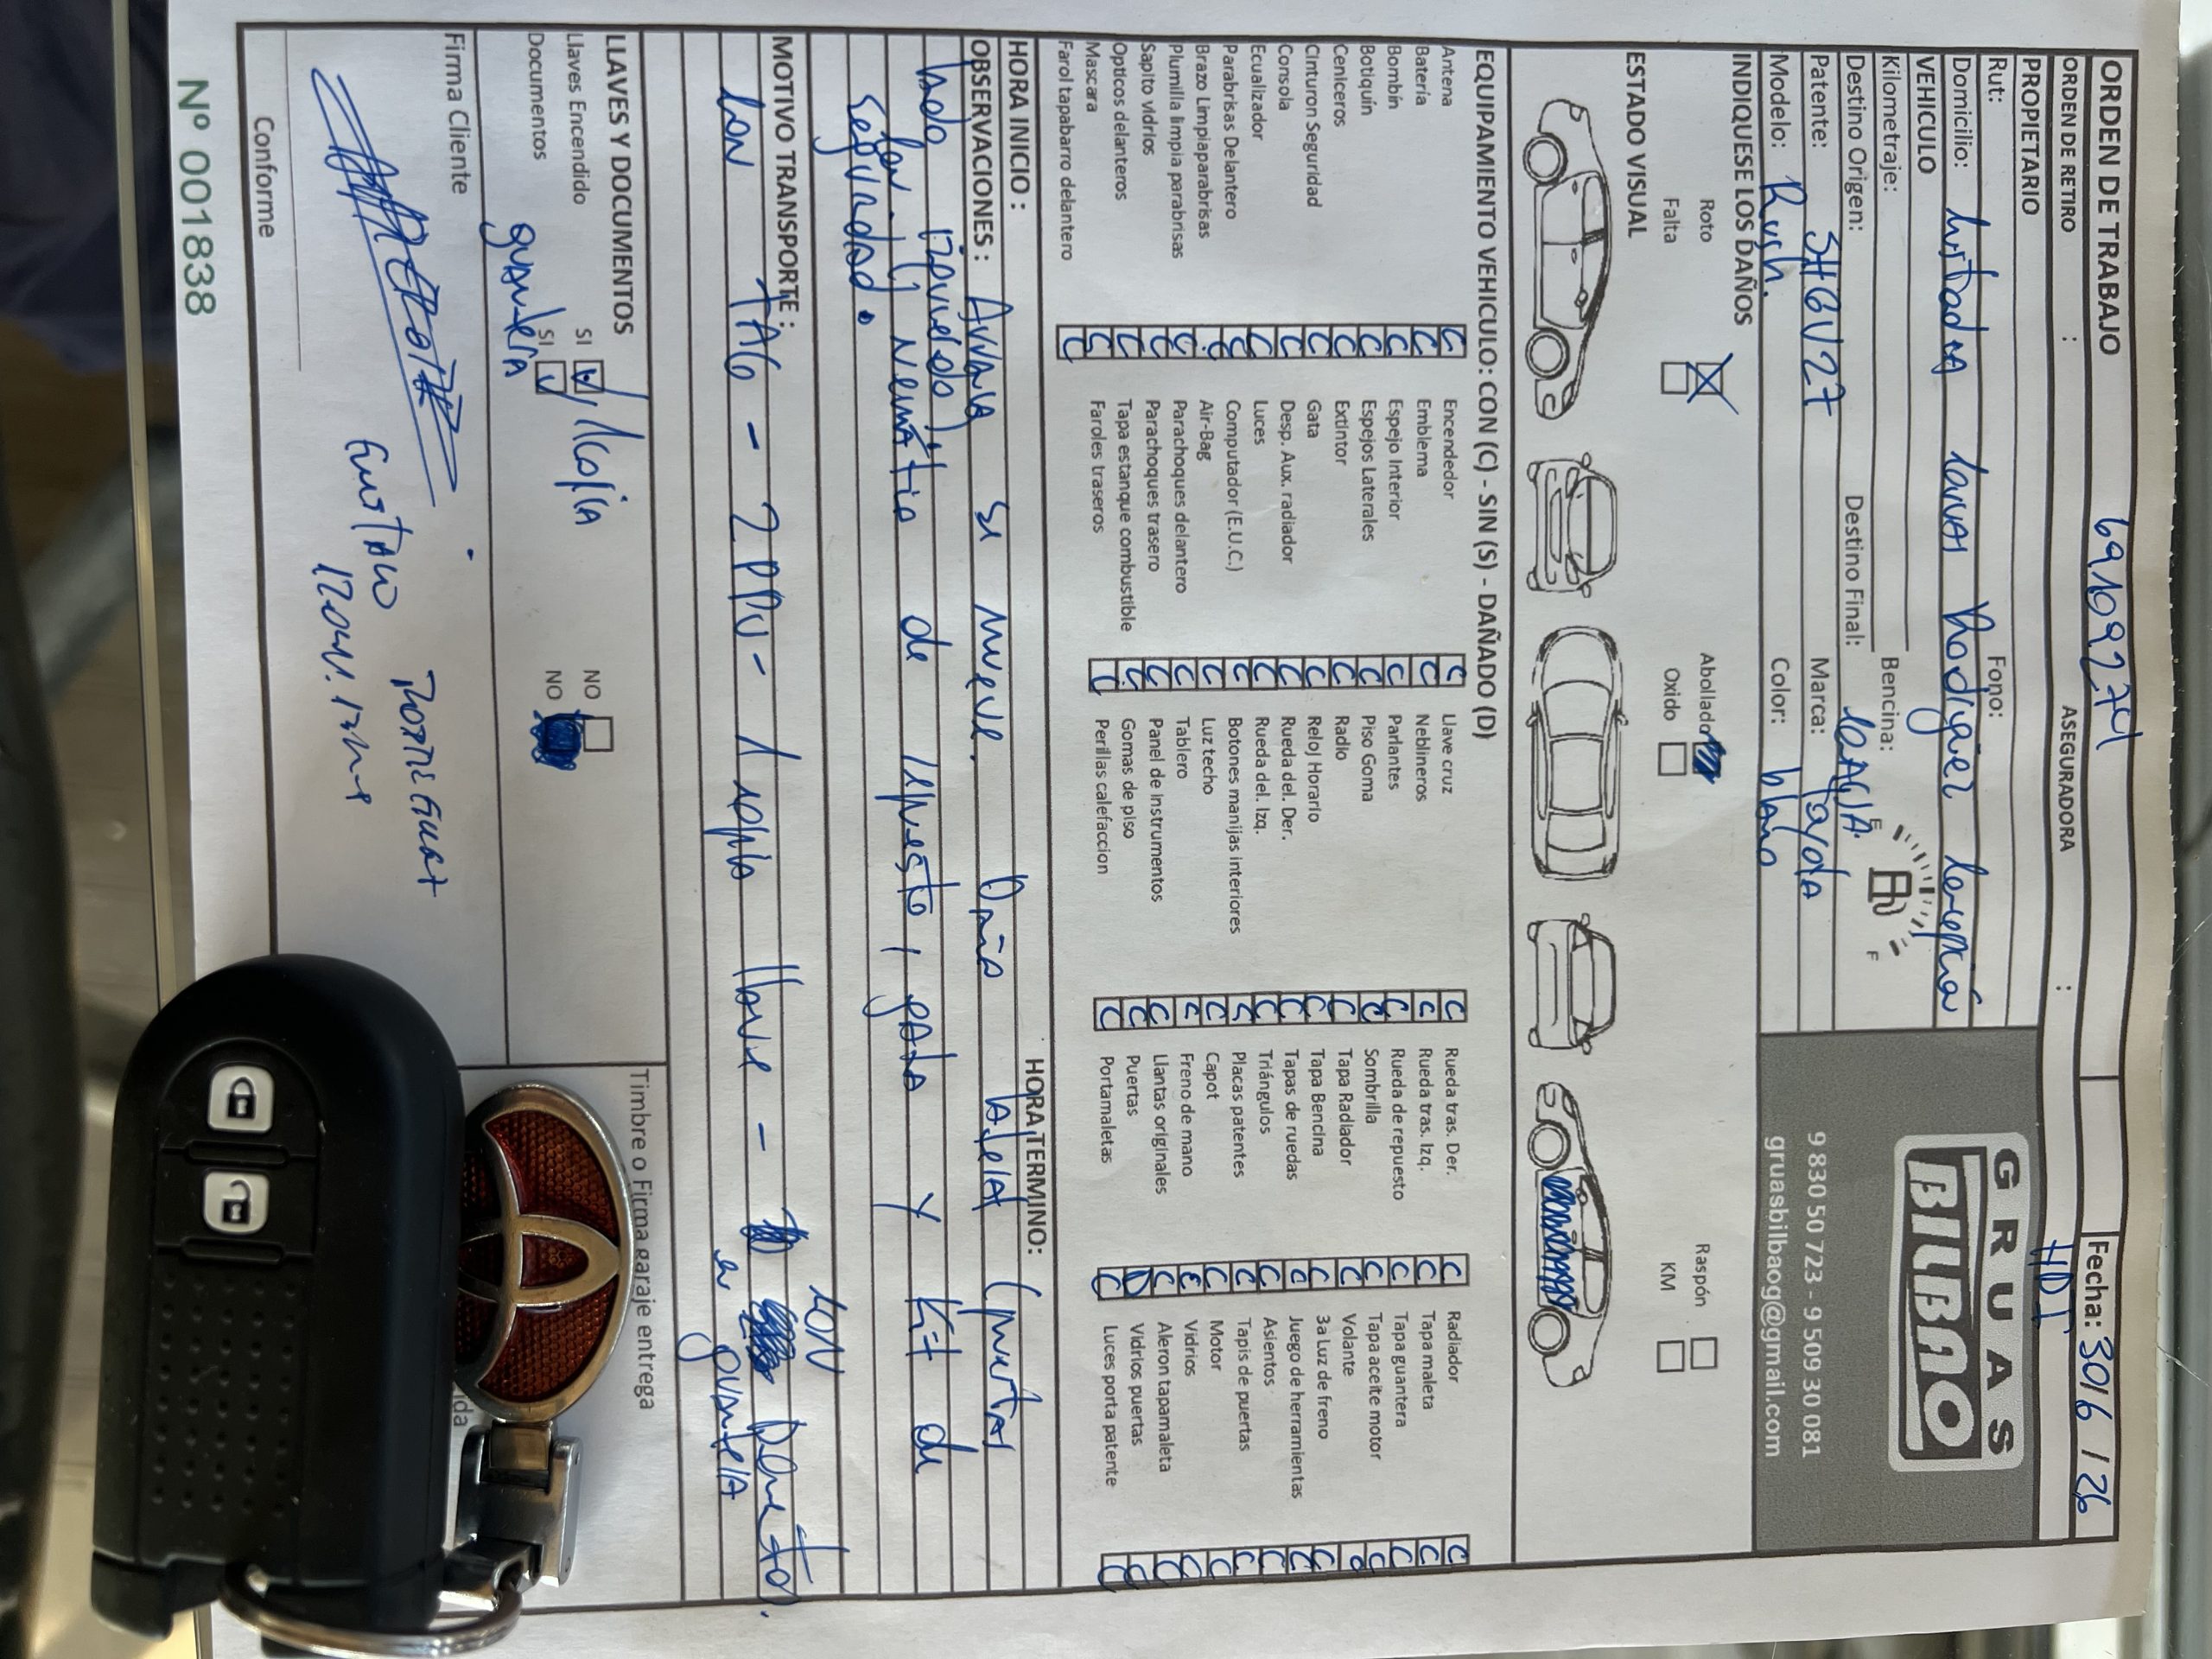 ORDEN DE TRABAJO 6910927 Fecha: 30/6/26
ORDEN DE RETIRO : ASEGURADORA : HDI
PROPIETARIO
Rut: Fono:
Domicilio:
VEHICULO
Kilometraje: Bencina: E F
Destino Origen: Destino Final:
Patente: SHGV27 Marca: Toyota
Modelo: Rush. Color: blanco
GRUAS
BILBAO
9 830 50 723 - 9 509 30 081
gruasbilbaog@gmail.com
INDIQUESE LOS DAÑOS
Roto Abollado Raspón
Falta Oxido KM
ESTADO VISUAL
EQUIPAMIENTO VEHICULO: CON (C) - SIN (S) - DAÑADO (D)
Antena C Encendedor C Llave cruz C Rueda tras. Der. C Radiador C
Batería C Emblema C Neblineros C Rueda tras. Izq. C Tapa maleta C
Bombín C Espejo Interior C Parlantes C Rueda de repuesto C Tapa guantera C
Botiquín C Espejos Laterales C Piso Goma C Sombrilla C Tapa aceite motor C
Ceniceros C Extintor C Radio C Tapa Radiador C Volante C
Cinturon Seguridad C Gata C Reloj Horario C Tapa Bencina C 3a Luz de freno C
Consola C Desp. Aux. radiador C Rueda del. Der. C Tapas de ruedas C Juego de herramientas C
Ecualizador C Luces C Rueda del. Izq. C Triángulos C Asientos C
Parabrisas Delantero C Computador (E.U.C.) C Botones manijas interiores C Placas patentes C Tapis de puertas C
Brazo Limpiaparabrisas C Air-Bag C Luz techo C Capot C Motor C
Plumilla limpia parabrisas C Parachoques delantero C Tablero C Freno de mano C Vidrios C
Sapito vidrios C Parachoques trasero C Panel de instrumentos C Llantas originales C Aleron tapamaleta C
Opticos delanteros C Tapa estanque combustible C Gomas de piso C Puertas D Vidrios puertas C
Mascara C Faroles traseros C Perillas calefaccion C Portamaletas C Luces porta patente C
Farol tapabarro delantero C
HORA INICIO : HORA TERMINO:
OBSERVACIONES : se mueve. Daño (puertas
lado izquierdo)
Con neumático de repuesto, gata y kit de
seguridad.
MOTIVO TRANSPORTE : CON
Con TAG - 2 PPU - 1 copia llave -
en guantera
LLAVES Y DOCUMENTOS Timbre o Firma garaje entrega
Llaves Encendido SI 1 copia NO
Documentos SI NO
guantera
Firma Cliente
Gustavo
Conforme
Nº 001838